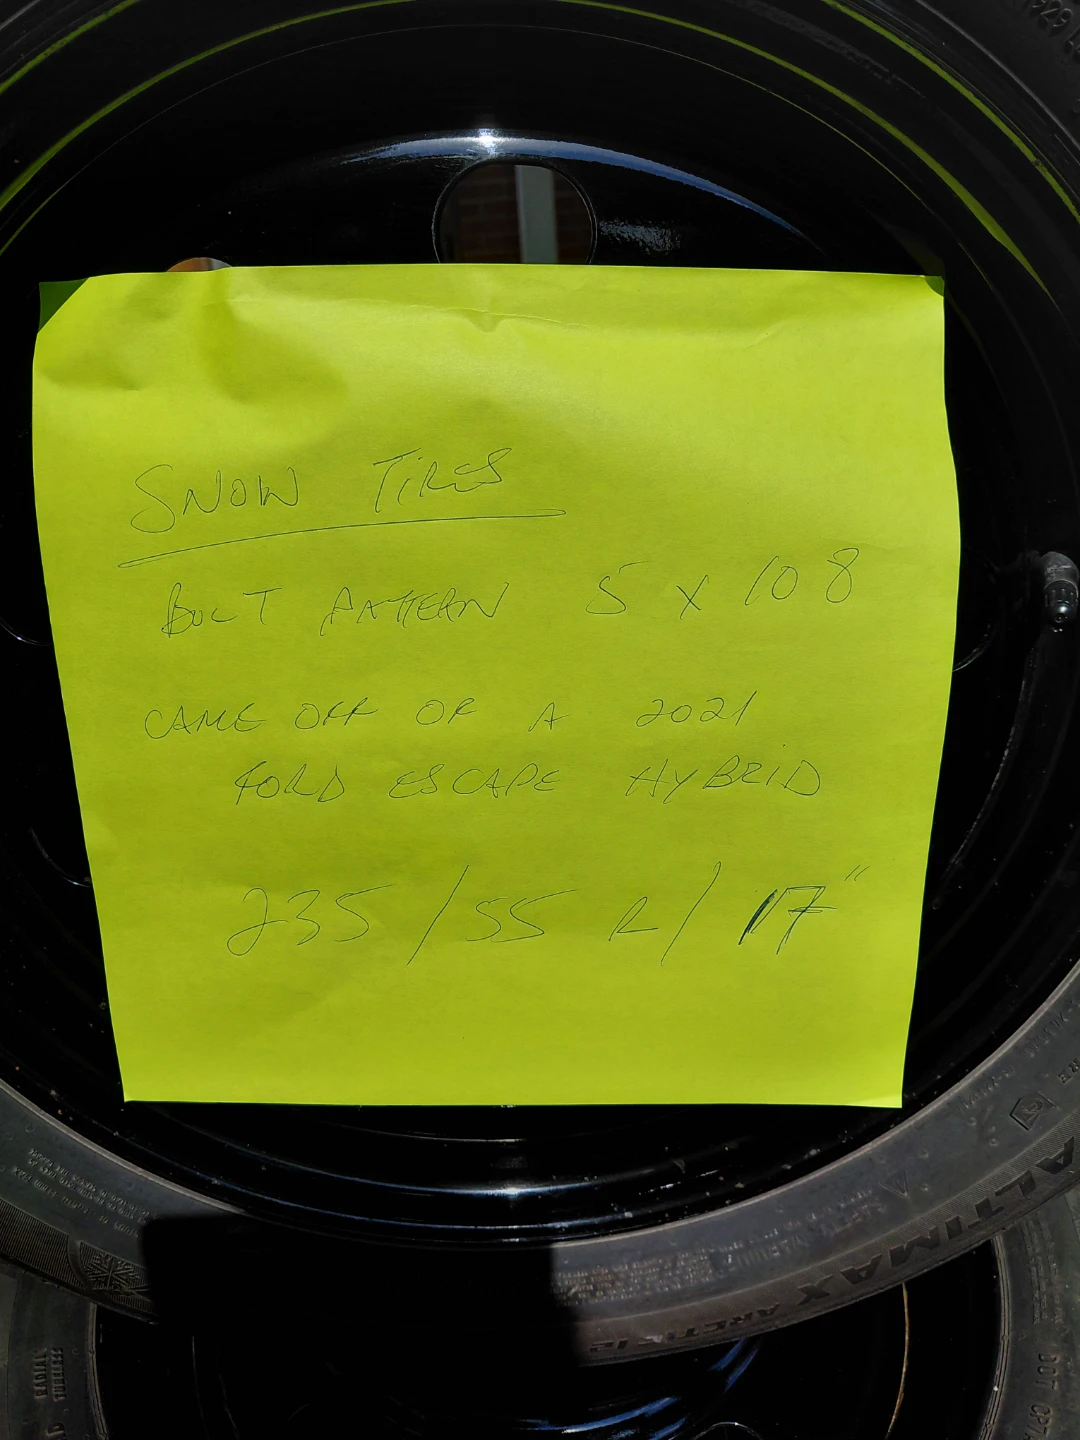 SNOW TIRES
BOLT PATTERN 5 X 108
CAME OFF OF A 2021
FORD ESCAPE HYBRID
235/55 R/17"
ALTIMAX ARCTIC
RADIAL
TUBELESS
DOT